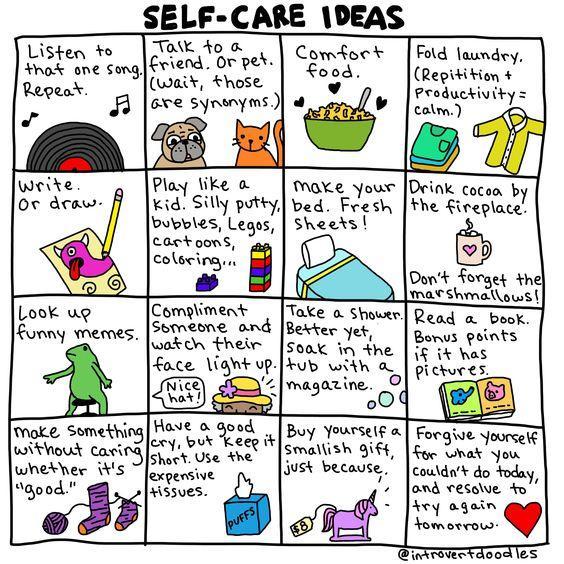 SELF-CARE IDEAS
Listen to
that one song.
Repeat.
Talk to a
friend. Or pet.
(Wait, those
are synonyms.)
Comfort
food.
Fold laundry.
(Repitition +
Productivity =
calm.)
Write.
Or draw.
Play like a
kid. Silly putty,
bubbles, Legos,
cartoons,
coloring...
make your
bed. Fresh
sheets!
Drink cocoa by
the fireplace.
Don't forget the
marshmallows!
Look up
funny memes.
Compliment
someone and
watch their
face light up.
Nice
hat!
Take a shower.
Better yet,
soak in the
tub with a
magazine.
Read a book.
Bonus points
if it has
pictures.
make something
without caring
whether it's
"good."
Have a good
cry, but keep it
short. Use the
expensive
tissues.
PUFFS
Buy yourself a
smallish gift,
just because.
$8
Forgive yourself
for what you
couldn't do today,
and resolve to
try again
tomorrow.
@introvertdoodles